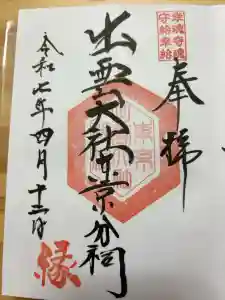 奉拝
幸魂奇魂
守給幸給
出雲大社東京分祠
令和七年四月十三日
縁